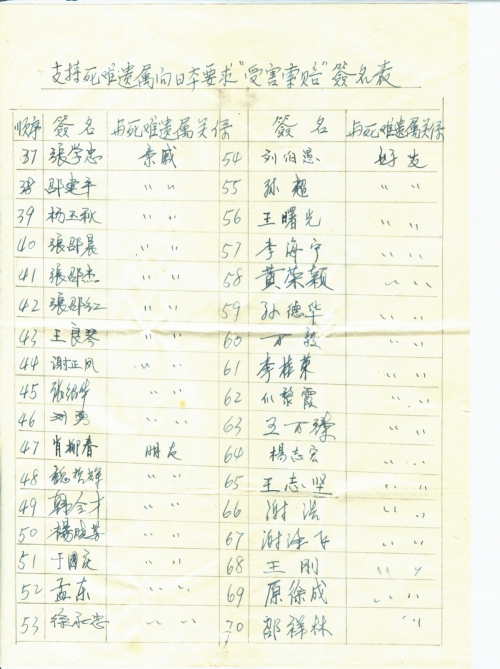 支持死难遗属向日本要求"受害索赔"簽名表
顺序 簽名 与死难遗属关係 簽名 与死难遗属关係
37 張学忠 亲戚 54 刘伯恩 好友
38 邵建平 〃 〃 55 孙超 〃 〃
39 杨玉秋 〃 〃 56 王曙光 〃 〃
40 張邵晨 〃 〃 57 李海宁 〃 〃
41 張邵杰 〃 〃 58 黄荣颖 〃 〃
42 張邵红 〃 〃 59 孙德华 〃 〃
43 王良琴 〃 〃 60 万毅 〃 〃
44 谢正凤 〃 〃 61 李桂荣 〃 〃
45 张绍华 〃 〃 62 黎霞 〃 〃
46 刘勇 〃 〃 63 王万臻 〃 〃
47 肖柳春 朋友 64 楊志宏 〃 〃
48 魏哲辉 〃 〃 65 王志坚 〃 〃
49 韩全才 〃 〃 66 谢浩 〃 〃
50 楊晓芳 〃 〃 67 谢泳飞 〃 〃
51 于國庆 〃 〃 68 王刚 〃 〃
52 孟东 〃 〃 69 原徐成 〃 〃
53 徐永忠 〃 〃 70 邵祥林 〃 〃